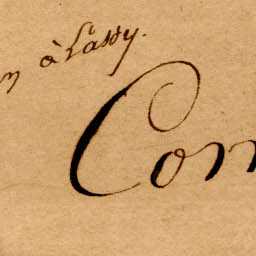 n à Lassy.
Com